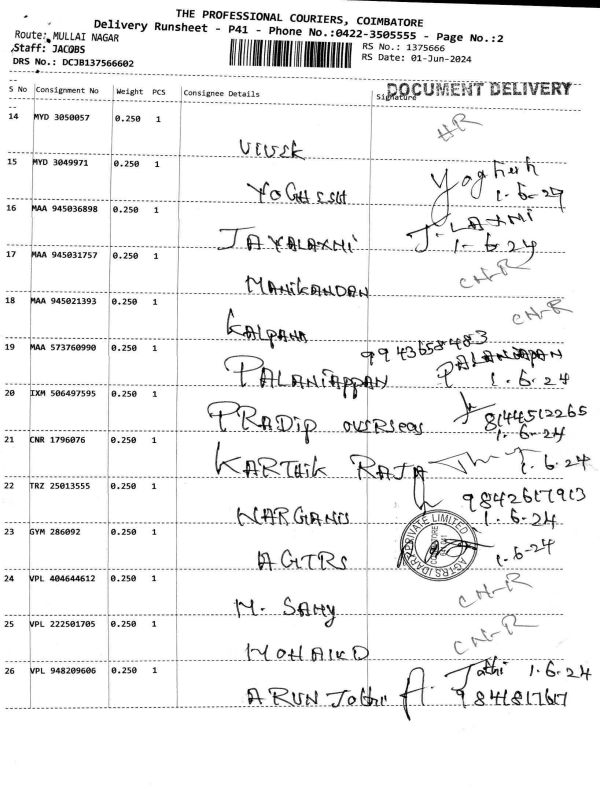 THE PROFESSIONAL COURIERS, COIMBATORE
Delivery Runsheet - P41 - Phone No.:0422-3505555 - Page No.:2
Route: MULLAI NAGAR
RS No.: 1375666
Staff: JACOBS
RS Date: 01-Jun-2024
DRS No.: DCJB137566602
DOCUMENT DELIVERY
S No Consignment No Weight PCS Consignee Details Signature
14 MYD 3050057 0.250 1
VIVEK
15 MYD 3049971 0.250 1
1.6.24
16 MAA 945036898 0.250 1
JAYALAXMI J.LAXMI
1.6.24
17 MAA 945031757 0.250 1
MANIKANDAN CN-R
18 MAA 945021393 0.250 1
KALPANA CN-R
19 MAA 573760990 0.250 1 9943658483
PALANIAPPAN PALANIAPPAN
1.6.24
20 IXM 506497595 0.250 1
PRADIP OVERSEAS 8144512265
1.6.24
21 CNR 1796076 0.250 1
KARTHIK RAJA 1.6.24
22 TRZ 25013555 0.250 1
9842617913
1.6.24
23 GYM 286092 0.250 1
AGTRS 1.6.24
PRIVATE LIMITED
24 VPL 404644612 0.250 1
M. SAMY CN-R
25 VPL 222501705 0.250 1
CN-R
26 VPL 948209606 0.250 1
ARUN Jothi A. Jothi 1.6.24